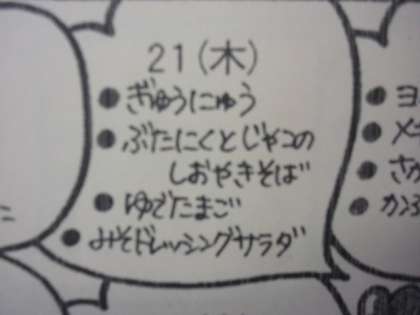 21(木)
●ぎゅうにゅう
●ぶたにくとじゃこの
しおやきそば
●ゆでたまご
●みそドレッシングサラダ
●ヨ
●メ
●さか
●かぶ